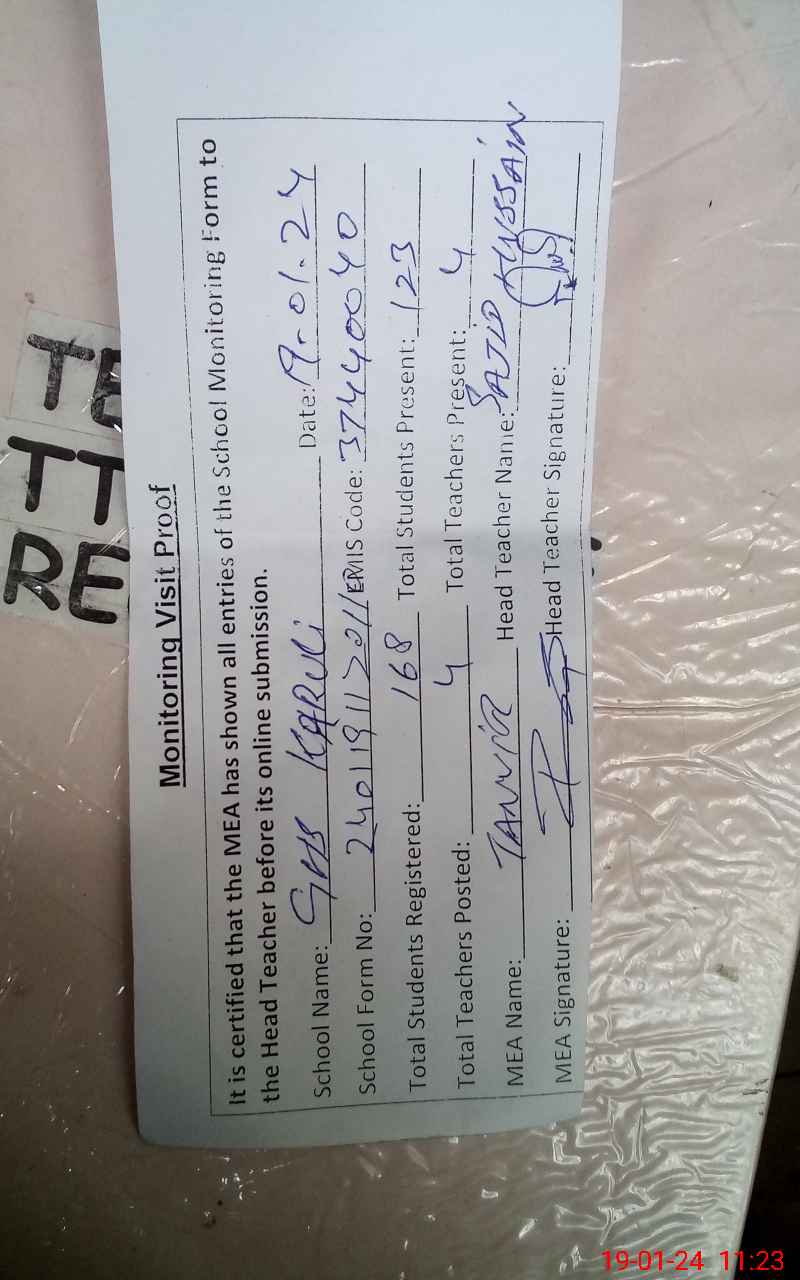 Monitoring Visit Proof
It is certified that the MEA has shown all entries of the School Monitoring Form to
the Head Teacher before its online submission.
School Name: Date: 19.01.24
School Form No: EMIS Code: 37440040
Total Students Registered: 168 Total Students Present: 123
Total Teachers Posted: 4 Total Teachers Present: 4
MEA Name: TANVIR Head Teacher Name: SAJID HUSSAIN
MEA Signature: Head Teacher Signature:
TE
TT
RE
19-01-24 11:23